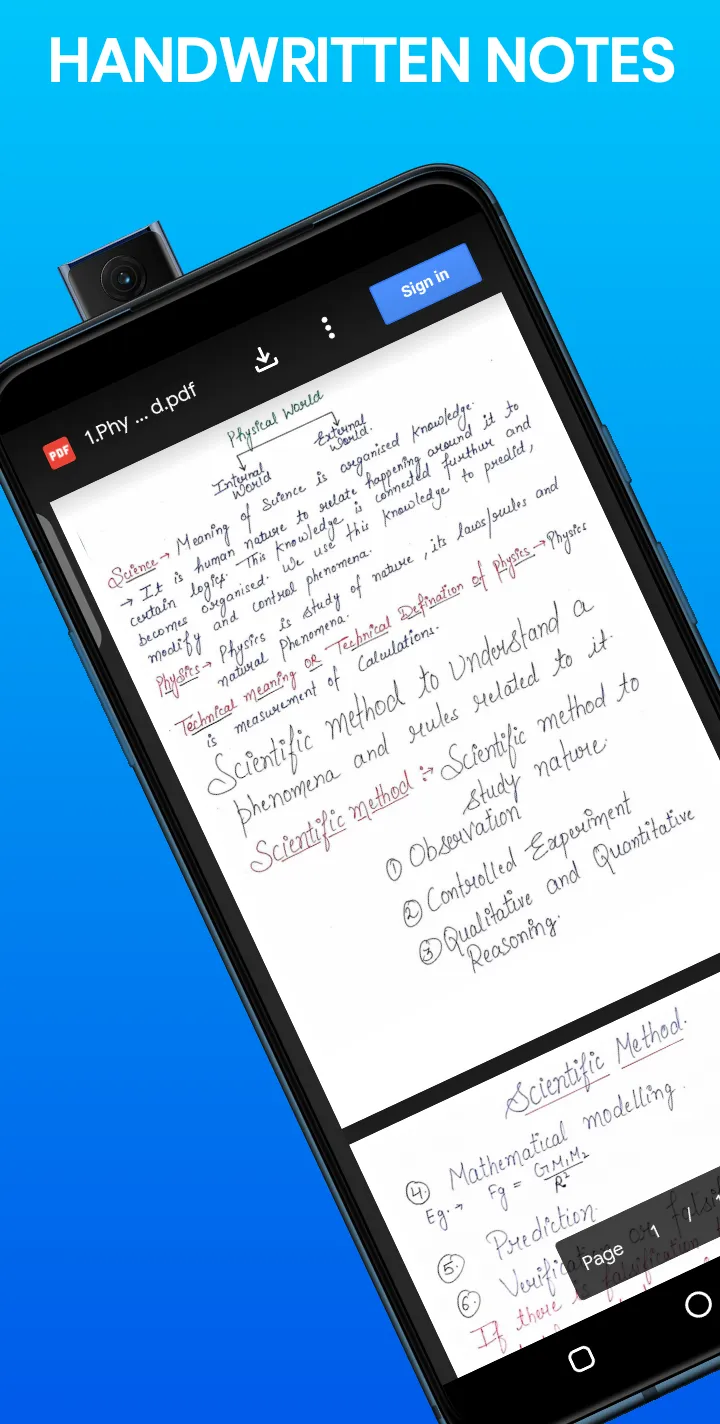 HANDWRITTEN NOTES
Sign in
PDF 1.Phy ... d.pdf
Physical World
Internal World
External World.
Science → Meaning of Science is organised Knowledge.
→ It is human nature to relate happening around it to
certain logics. This Knowledge is connected furthur and
becomes organised. We use this Knowledge to predid,
modify and control phenomena.
Physics → Physics is study of nature, its laws/rules and
natural Phenomena.
Technical meaning OR Technical Defination of Physics → Physics
is measurement of Calculations.
Scientific method to Understand a
phenomena and rules related to it.
Scientific method :→ Scientific method to
study nature.
① Observation
② Controlled Experiment
③ Qualitative and Quantitative
Reasoning.
Scientific Method.
④. Mathematical modelling.
Eg. → Fg = GM₁M₂/R²
⑤. Prediction.
⑥. or falsi
If there is falsification
Page 1 /